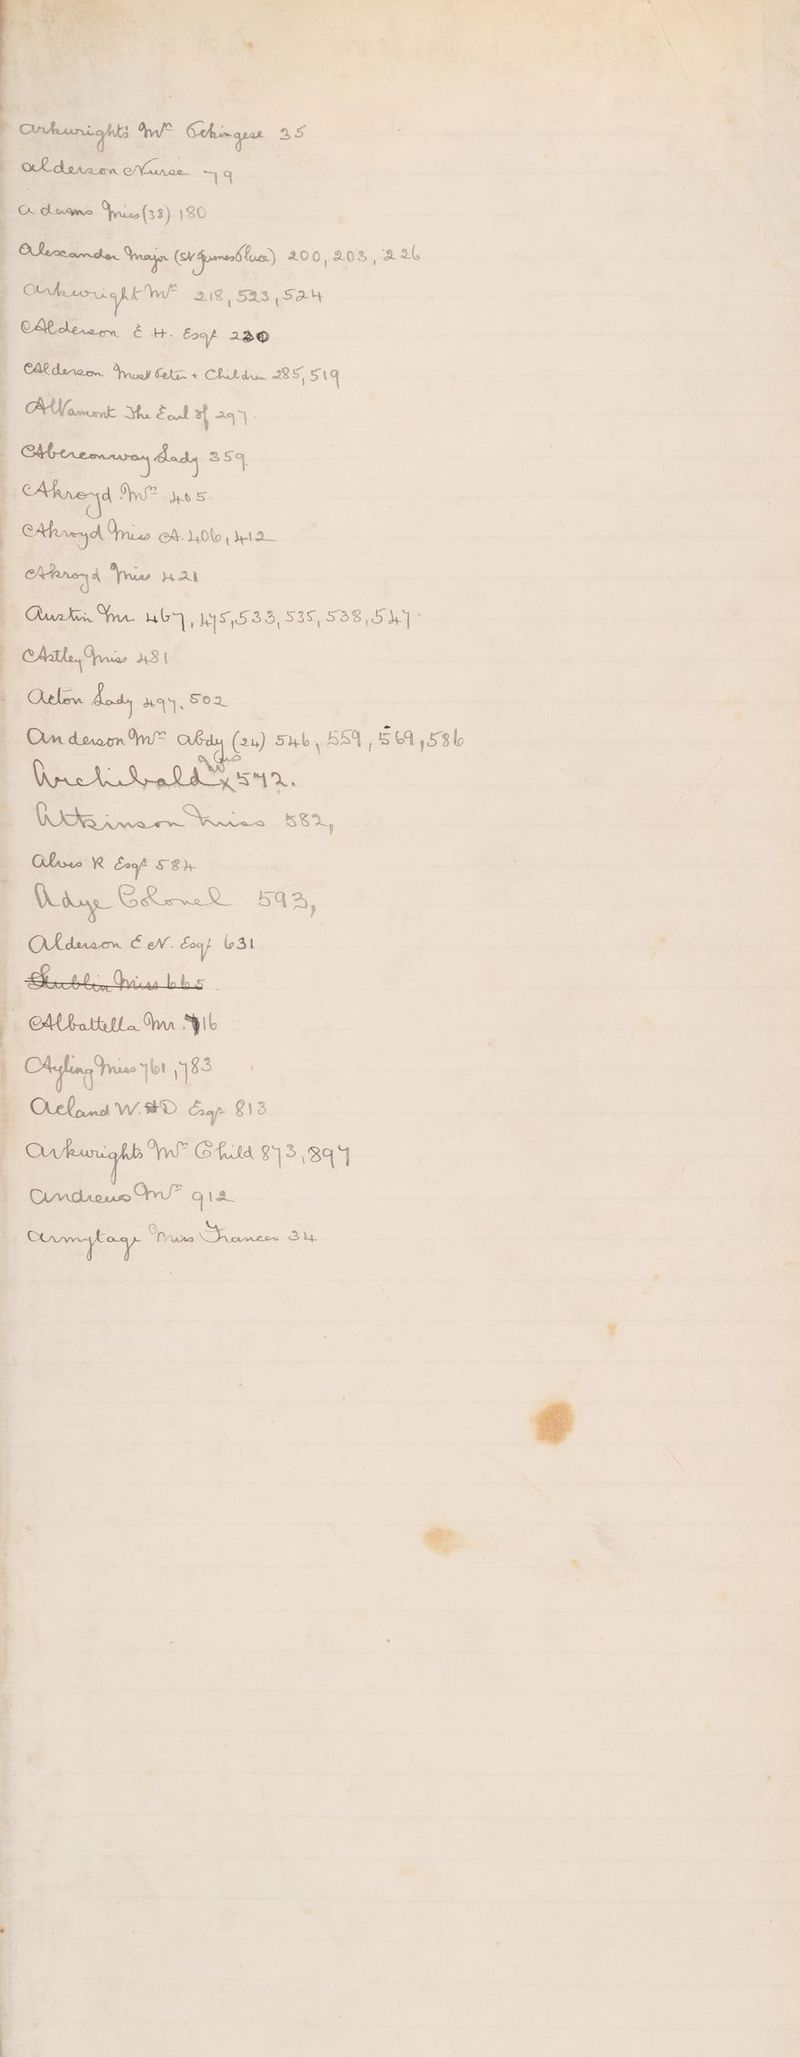 Arkwright's Mrs Pekingese 35
Alderson Nurse 79
Adams Miss (38) 180
Alexander Major (St James Place) 200, 203, 226
Arkwright Mrs 218, 523, 524
Alderson E. H. Esqr 230
Alderson Peter & Children 285, 519
Altamont The Earl of 297
Aberconway Lady 359
Akroyd Mrs 405
Akroyd Miss A. 406, 412
Akroyd Miss 421
Austin Mr 467, 475, 533, 535, 538, 547
Astley Miss 481
Acton Lady 497, 502
Anderson Mrs Abdy (24) 546, 559, 569, 586
Archibald Mrs 572.
Atkinson Miss 582,
Alves R Esqr 584
Adye Colonel 593,
Alderson E N. Esqr 631
Miss 665
Albattella Mr 716
Ayling Miss 761, 783
Acland W. H D Esqr 813
Arkwrights Mrs Child 873, 897
Andrews Mrs 912
Armytage Miss Frances 34